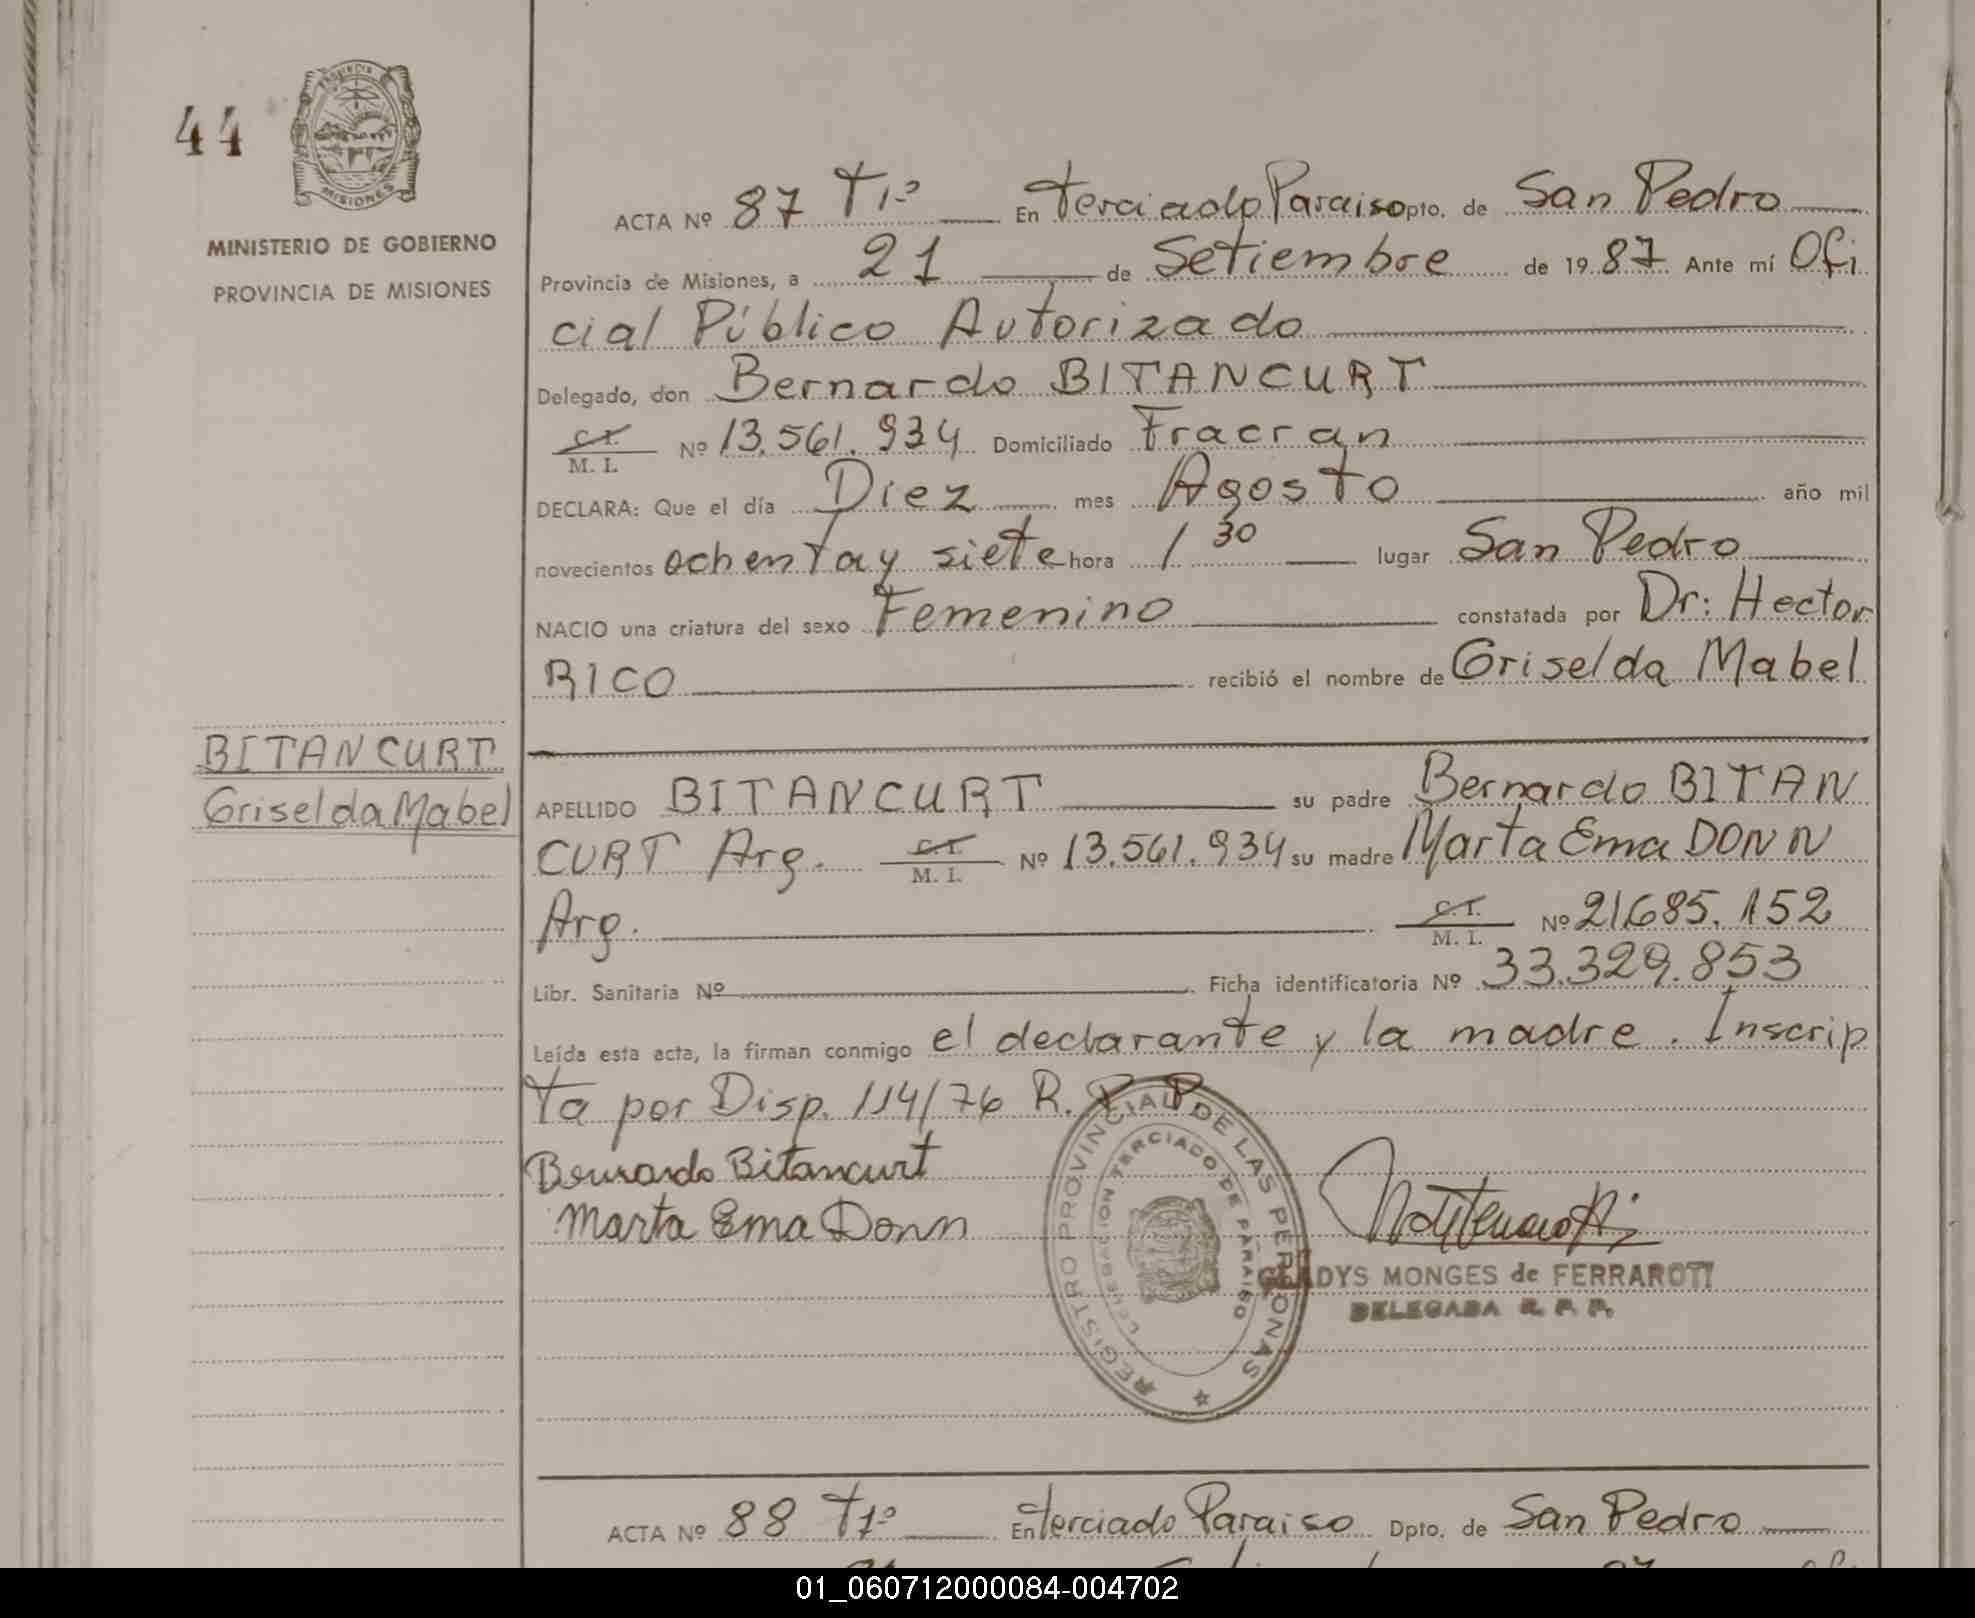 44
PROVINCIA
MISIONES
MINISTERIO DE GOBIERNO
PROVINCIA DE MISIONES
ACTA Nº 87 T 1º En Terciado Paraiso pto. de San Pedro
Provincia de Misiones, a 21 de Setiembre de 1987 Ante mí Ofi
cial Público Autorizado
Delegado, don Bernardo BITANCURT
C. I.
M. I. Nº 13.561.934 Domiciliado Fracran
DECLARA: Que el día Diez mes Agosto año mil
novecientos ochenta y siete hora 1 30 lugar San Pedro
NACIO una criatura del sexo Femenino constatada por Dr: Hector
RICO recibió el nombre de Griselda Mabel
BITANCURT
Griselda Mabel
APELLIDO BITANCURT su padre Bernardo BITAN
CURT Arg. C. I. M. I. Nº 13.561.934 su madre Marta Ema DONN
Arg. C. I. M. I. Nº 21.685.152
Libr. Sanitaria Nº Ficha identificatoria Nº 33.329.853
Leída esta acta, la firman conmigo el declarante y la madre. Inscrip
ta por Disp. 114/76 R. P. P.
Bernardo Bitancurt
Marta Ema Donn
REGISTRO PROVINCIAL DE LAS PERSONAS
DELEGACION TERCIADO DE PARAISO
GLADYS MONGES de FERRAROTI
DELEGADA R. P. P.
ACTA Nº 88 T 1º En Terciado Paraiso Dpto. de San Pedro
01_060712000084-004702